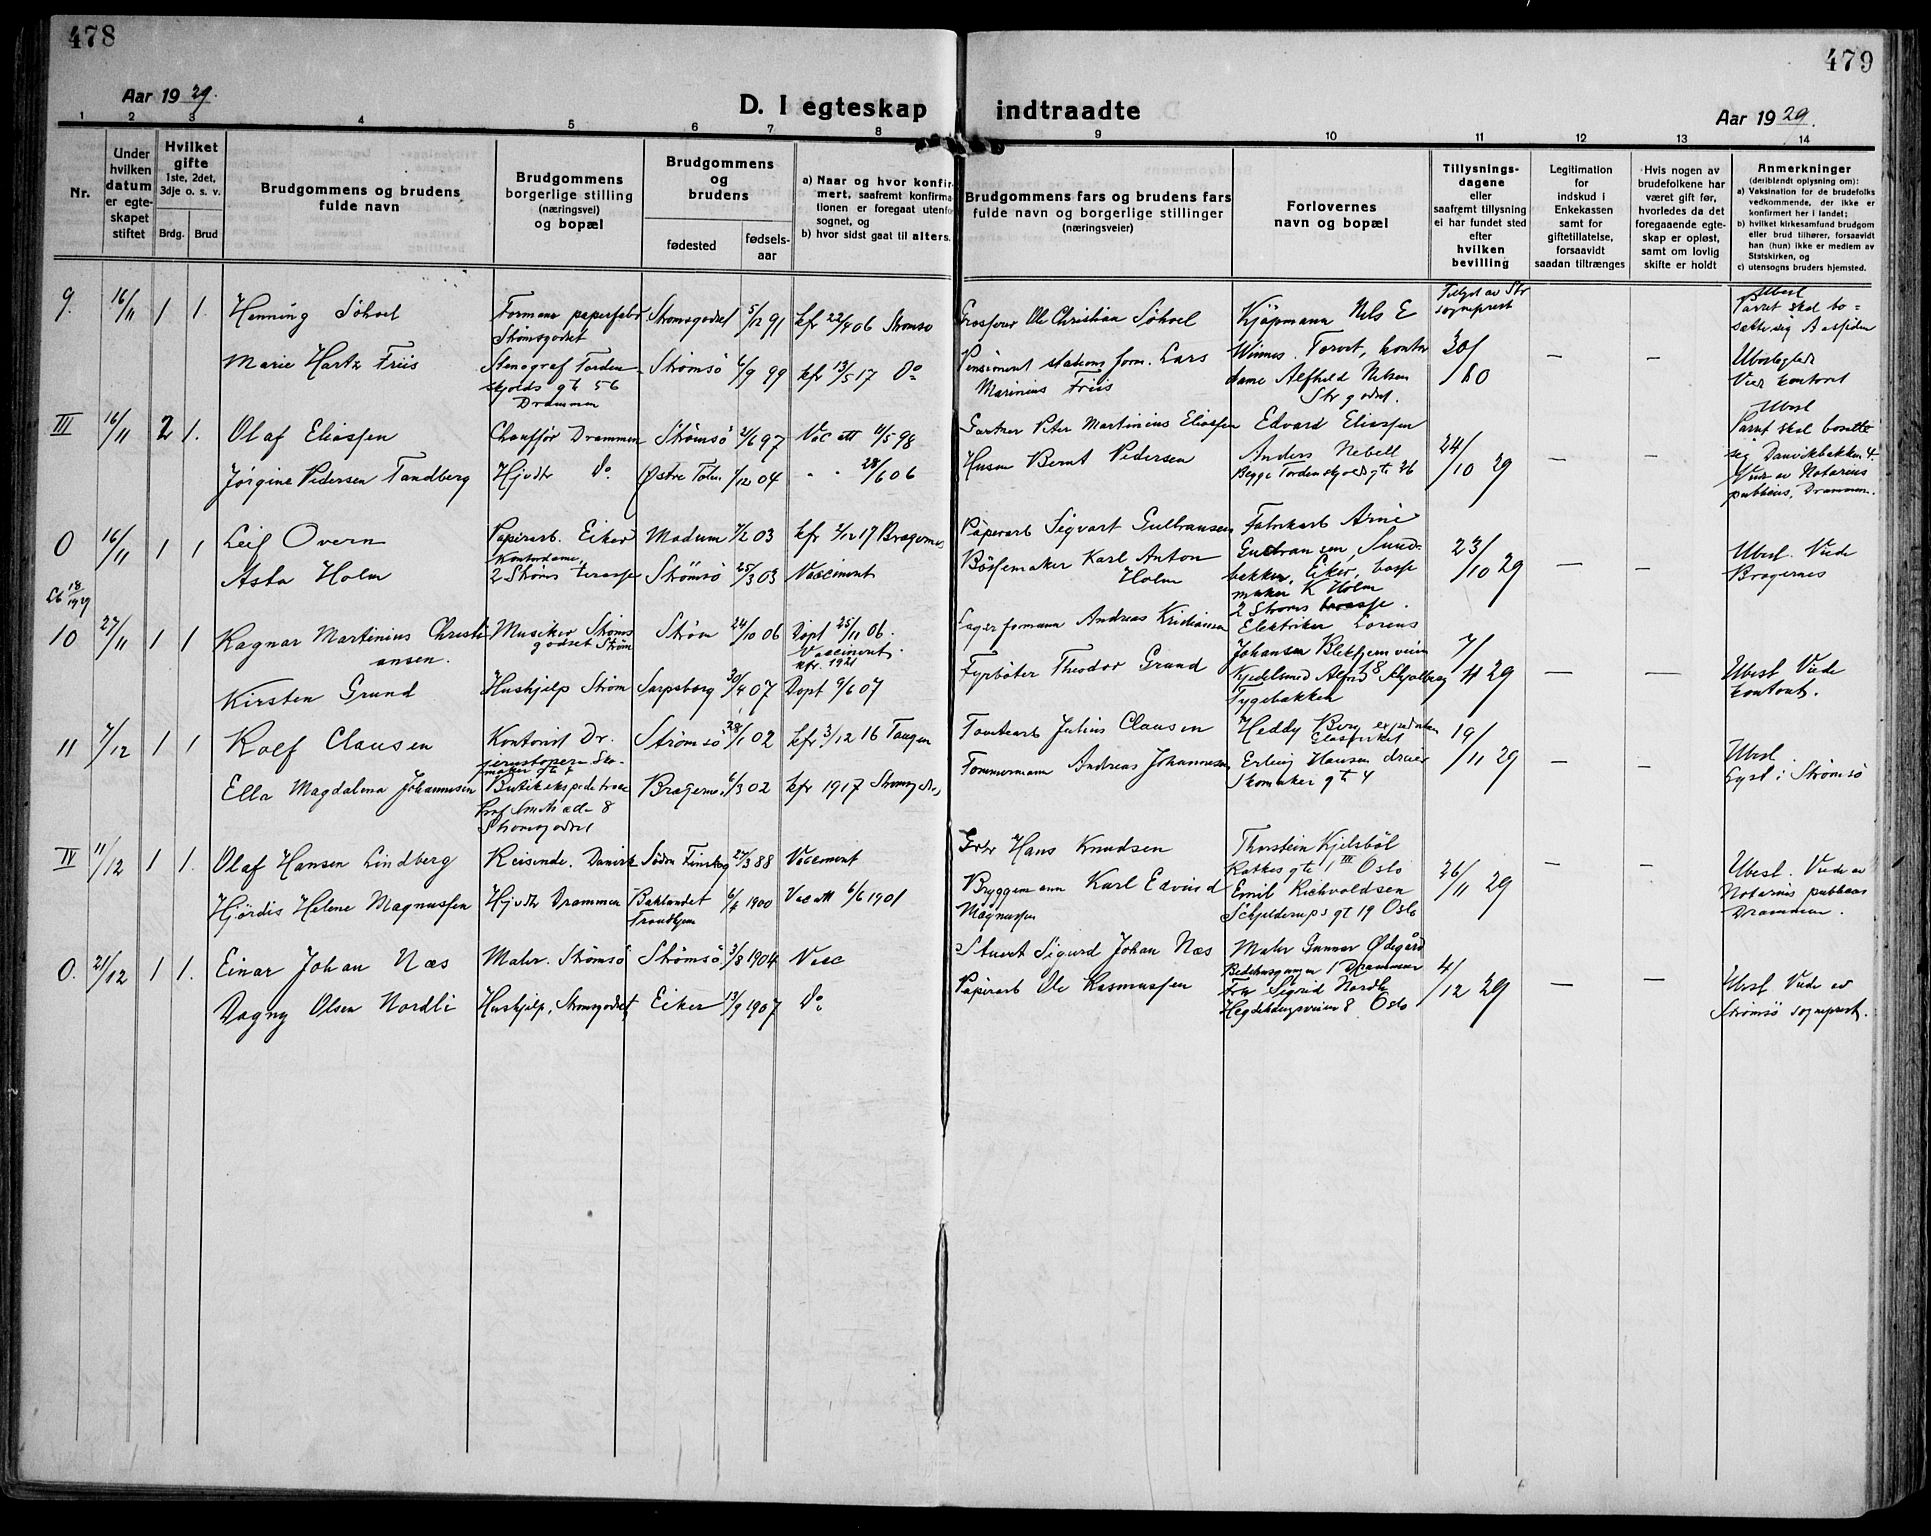 478
479
Aar 1929.
D. I egteskap indtraadte
Aar 1929.
1 2 3 4 5 6 7 8 9 10 11 12 13 14
Nr.
Under hvilken datum er egteskapet stiftet
Hvilket gifte 1ste, 2det, 3dje o. s. v.
Brdg. Brud
Brudgommens og brudens fulde navn
Brudgommens borgerlige stilling (næringsvei) og bopæl
Brudgommens og brudens
fødested
fødselsaar
a) Naar og hvor konfirmert, saafremt konfirmationen er foregaat utenfor sognet, og
b) hvor sidst gaat til alters.
Brudgommens fars og brudens fars fulde navn og borgerlige stillinger (næringsveier)
Forlovernes navn og bopæl
Tillysningsdagene eller saafremt tillysning ei har fundet sted efter hvilken bevilling
Legitimation for indskud i Enkekassen samt for giftetillatelse, forsaavidt saadan tiltrænges
Hvis nogen av brudefolkene har været gift før, hvorledes da det foregaaende egteskap er opløst, samt om lovlig skifte er holdt
Anmerkninger (deriblandt oplysning om):
a) Vaksination for de brudefolks vedkommende, der ikke er konfirmert her i landet;
b) hvilket kirkesamfund brudgom eller brud tilhører, forsaavidt han (hun) ikke er medlem av Statskirken, og
c) utensogns bruders hjemsted.
9. 16/11 1 1. Henning Söhoel Formann paperfabr Strømsgodset Strømsgodset 5/12 91 kfr 22/4 06 Strømsø Grosserer Ole Christian Söhoel Kjøpmann Nils E
Marie Hartz Friis Stenograf Tordenskjolds gt 56 Drammen Strømsö 6/9 99 kfr 13/5 17 Do Pensionert stations form. Lars Marinius Friis Winnes. Torvet, kontordame Alfhild Nilsen Str godset. 30/10 — — Ubesl Parret skal bosætte sig
III 16/11 2 1. Olaf Eliassen Chauffør Drammen Strømsö 2/6 97 Vac att 11/5 98 Gartner Peter Martinius Eliassen Edvard Eliassen
Jørgine Pedersen Tandberg Hjvdtr do Østre Toten 1/12 04 " " 28/6 06 Husm Bernt Pedersen Anders Nebell Begge Tordenskjolds gt 36 24/10 29 Ubesl Parret skal bosætte sig Danvikbakken 4. Viet av Notarius publicus, Drammen.
0 16/11 1 1 Leif Overn Papirarb. Eiker Modum 7/2 03 kfr 2/12 17 Bragernes Papirarb Sigvart Gulbransen Fabrikarb Arne
Lb 18/1929 Asta Holm Kontordame 2 Strøms terasse Strömsö 25/3 03 Vaccinert Bössemaker Karl Anton Holm Gudransen, Sundbakken, Eiker, bøssemaker K Holm 2 Strøms terasse. 23/10 29 — — Ubesl. Viede Bragernes
10 27/11 1 1 Ragnar Martinius Christiansen. Musiker Strømsgodset Strøm Strøm 24/10 06 Döpt 25/11 06. Vaccinert. kfr. 1921 Lagerformann Andreas Kristiansen Elektriker Lorens
Kirsten Grund Hushjelp Strøm Sarpsborg 30/4 07 Döpt 9/6 07 Fyrböter Theodor Grund Johansen Blekkjernveien 18 Kjedelsmed Alfred Skjolberg Tygebakken 7/11 29 — — Ubesl Viede kontoret.
11 7/12 1 1 Rolf Clausen Kontorist Dr. Skomaker gt 4 Strömsö 28/1 02 kfr 3/12 16 Tangen Julius Clausen Heddy Berg
Ella Magdalena Johannesen Butikekspeditrise Prof Smiths ade 8 Strømsgodset Bragernes 6/3 02 kfr 1917 Strømsgodset Tømmermann Andreas Johannesen Erling Hansen dreier Skomaker gt 4 19/11 29 — — Ubesl Lyst i Strømsö
IV 11/12 1 1. Olaf Hansen Lindberg Reisende. Danvik Södre Finskog 27/3 88 Vaccinert Grbr Hans Knudsen Thorstein Kjelsböl Ratkes gt 1 III Oslo
Hjördis Helene Magnussen Hjvdtr Drammen Baklandet Trondhjem 6/4 1900 Vac att 6/6 1901 Bryggemann Karl Edvind Magnussen Emil Richvoldsen Schjelderups gt 19 Oslo 26/11 29 — — Ubesl. Viede av Notarius publicus Drammen.
0. 21/12 1 1. Einar Johan Næs Maler. Strømsö Strømsö 3/8 1904 Vacc Stuert Sigurd Johan Næs Maler Gunnar Ødegård Bedehusgangen 1 Drammen
Dagny Olsen Nordli Hushjelp, Strømsgodset Eiker 13/9 1907 do Papirarb Ole Rasmussen Frk Sigrid Nordli Hegdehaugsveien 8 Oslo 4/12 29 — — Ubesl Viede av Strömsö sogneprest.